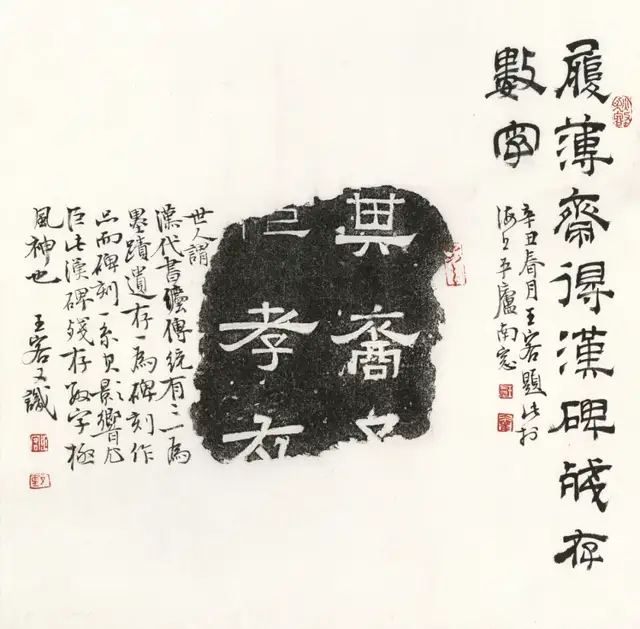 履薄齋得漢碑殘存
數字
辛丑春月王客題此於
海上平廬南窓
其裔
孝友
世人謂
漢代書傳統有二一為
墨蹟遺存一為碑刻作
品而碑刻一系其影響尤
巨此漢碑殘存數字極
風神也 王客又識